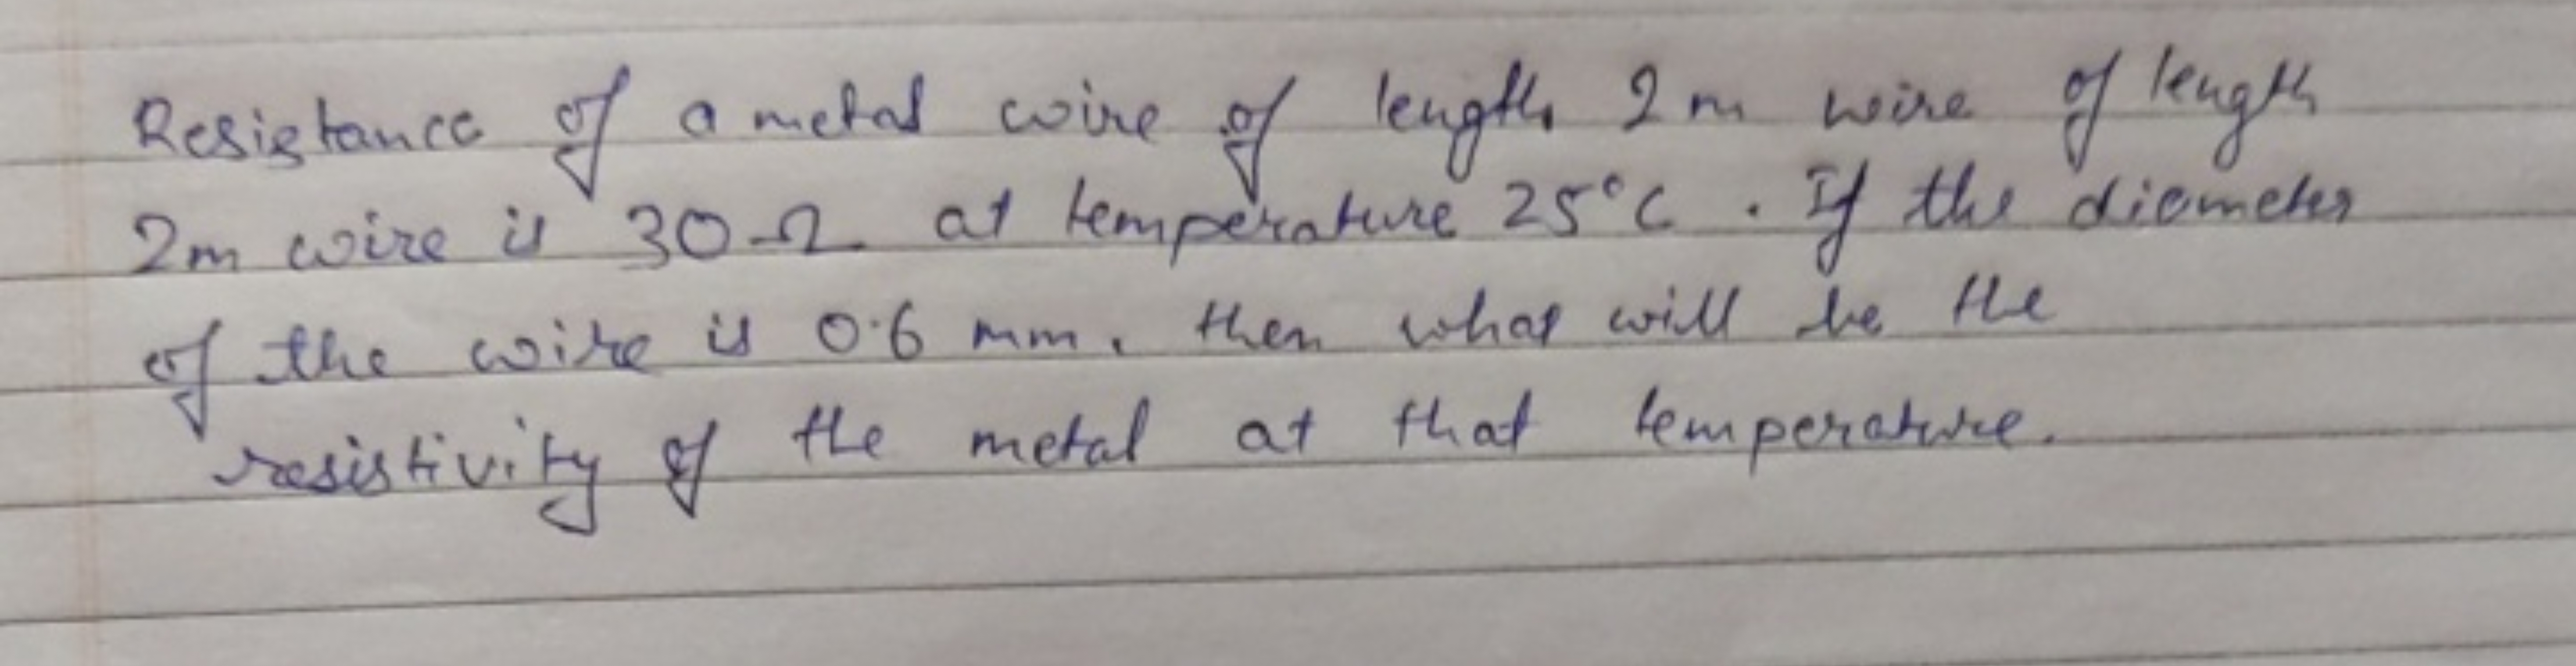 Resistance of a metal wire of length 2m wire of length
2m wire is 30 Ω at temperature 25°C . If the diameter
of the wire is 0.6 mm, then what will be the
resistivity of the metal at that temperature.